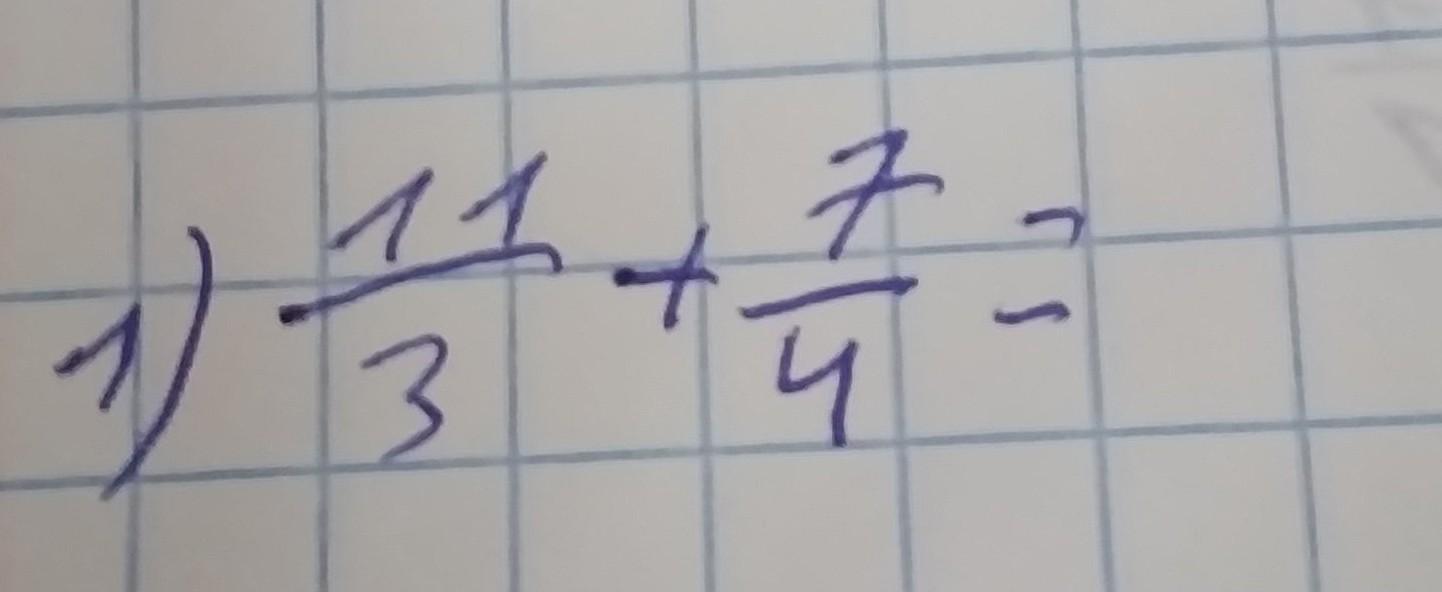 1) 11/3 + 7/4 =